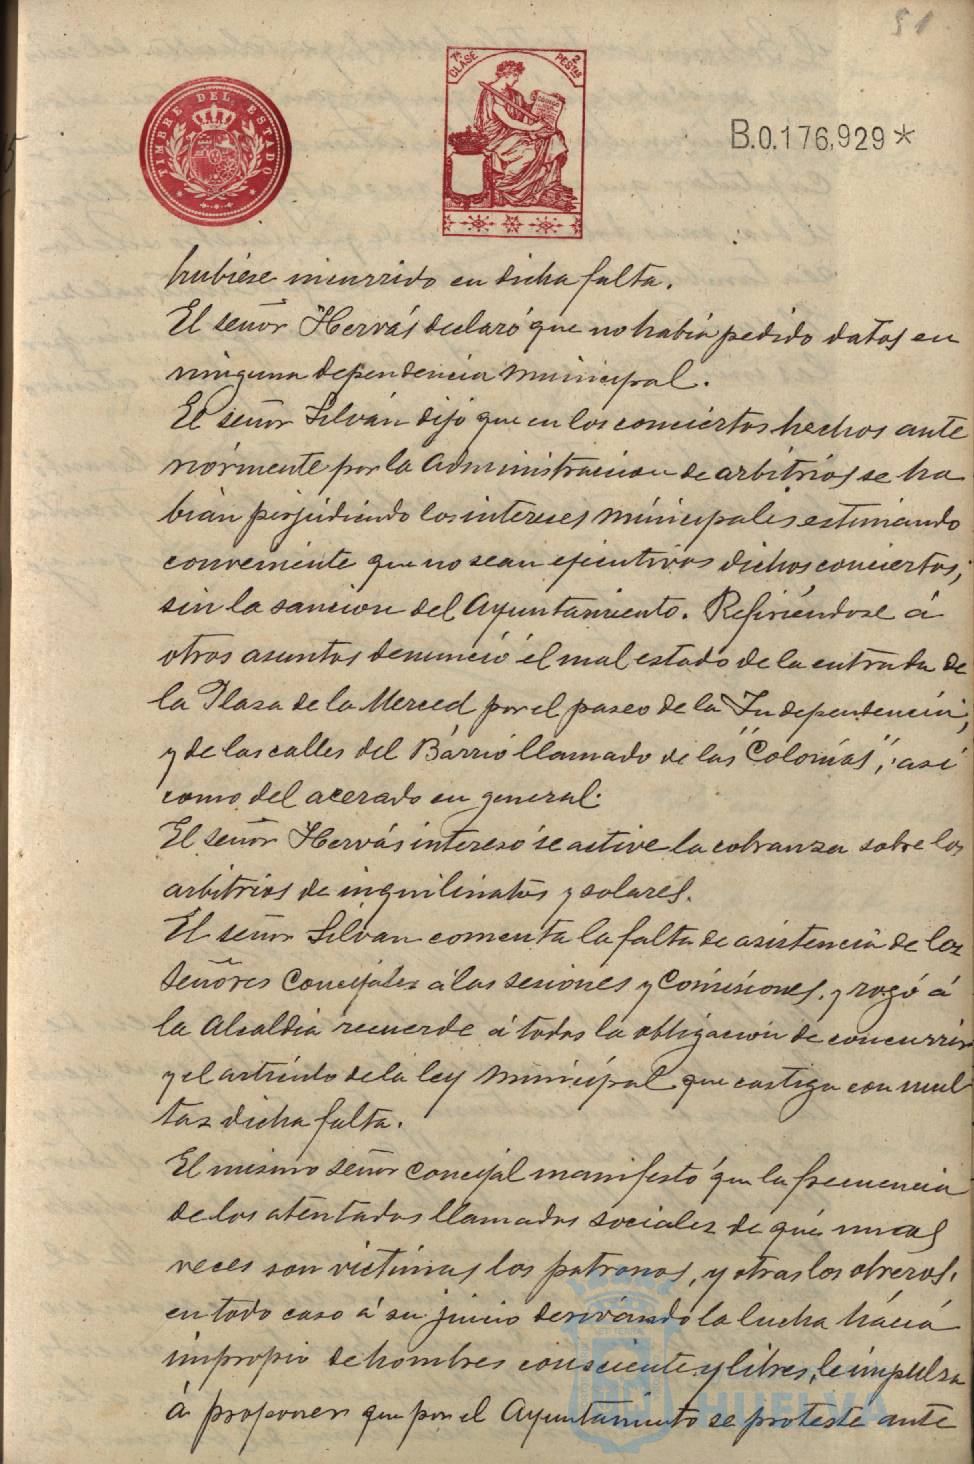 51
TIMBRE DEL ESTADO
7ª CLASE 2 PESETAS
B.0.176,929*
hubiese incurrido en dicha falta.
El señor Hervás declaró que no había pedido datos en
ninguna dependencia municipal.
El señor Silván dijo que en los conciertos hechos ante
riormente por la Administracion de arbitrios se ha
bian perjudicado los intereses municipales estimando
conveniente que no sean ejecutivos dichos conciertos,
sin la sancion del Ayuntamiento. Refiriéndose á
otros asuntos denunció el mal estado de la entrada de
la Plaza de la Merced por el paseo de la Independencia,
y de las calles del Barrio llamado de las "Colonias", así
como del acerado en general.
El señor Hervás interesó se active la cobranza sobre los
arbitrios de inquilinatos y solares.
El señor Silvan comenta la falta de asistencia de los
señores Concejales á las sesiones y Comisiones, y rogó á
la Alcaldia recuerde á todos la obligacion de concurrir
y el artículo de la ley municipal que castiga con mul
tas dicha falta.
El mismo señor Concejal manifestó que la frecuencia
de los atentados llamados sociales de que unas
veces son victimas los patronos, y otras los obreros,
en todo caso á su juicio derivando la lucha hácia
impropio de hombres consciente y libres, le impulsa
á proponer que por el Ayuntamiento se proteste ante
HUELVA